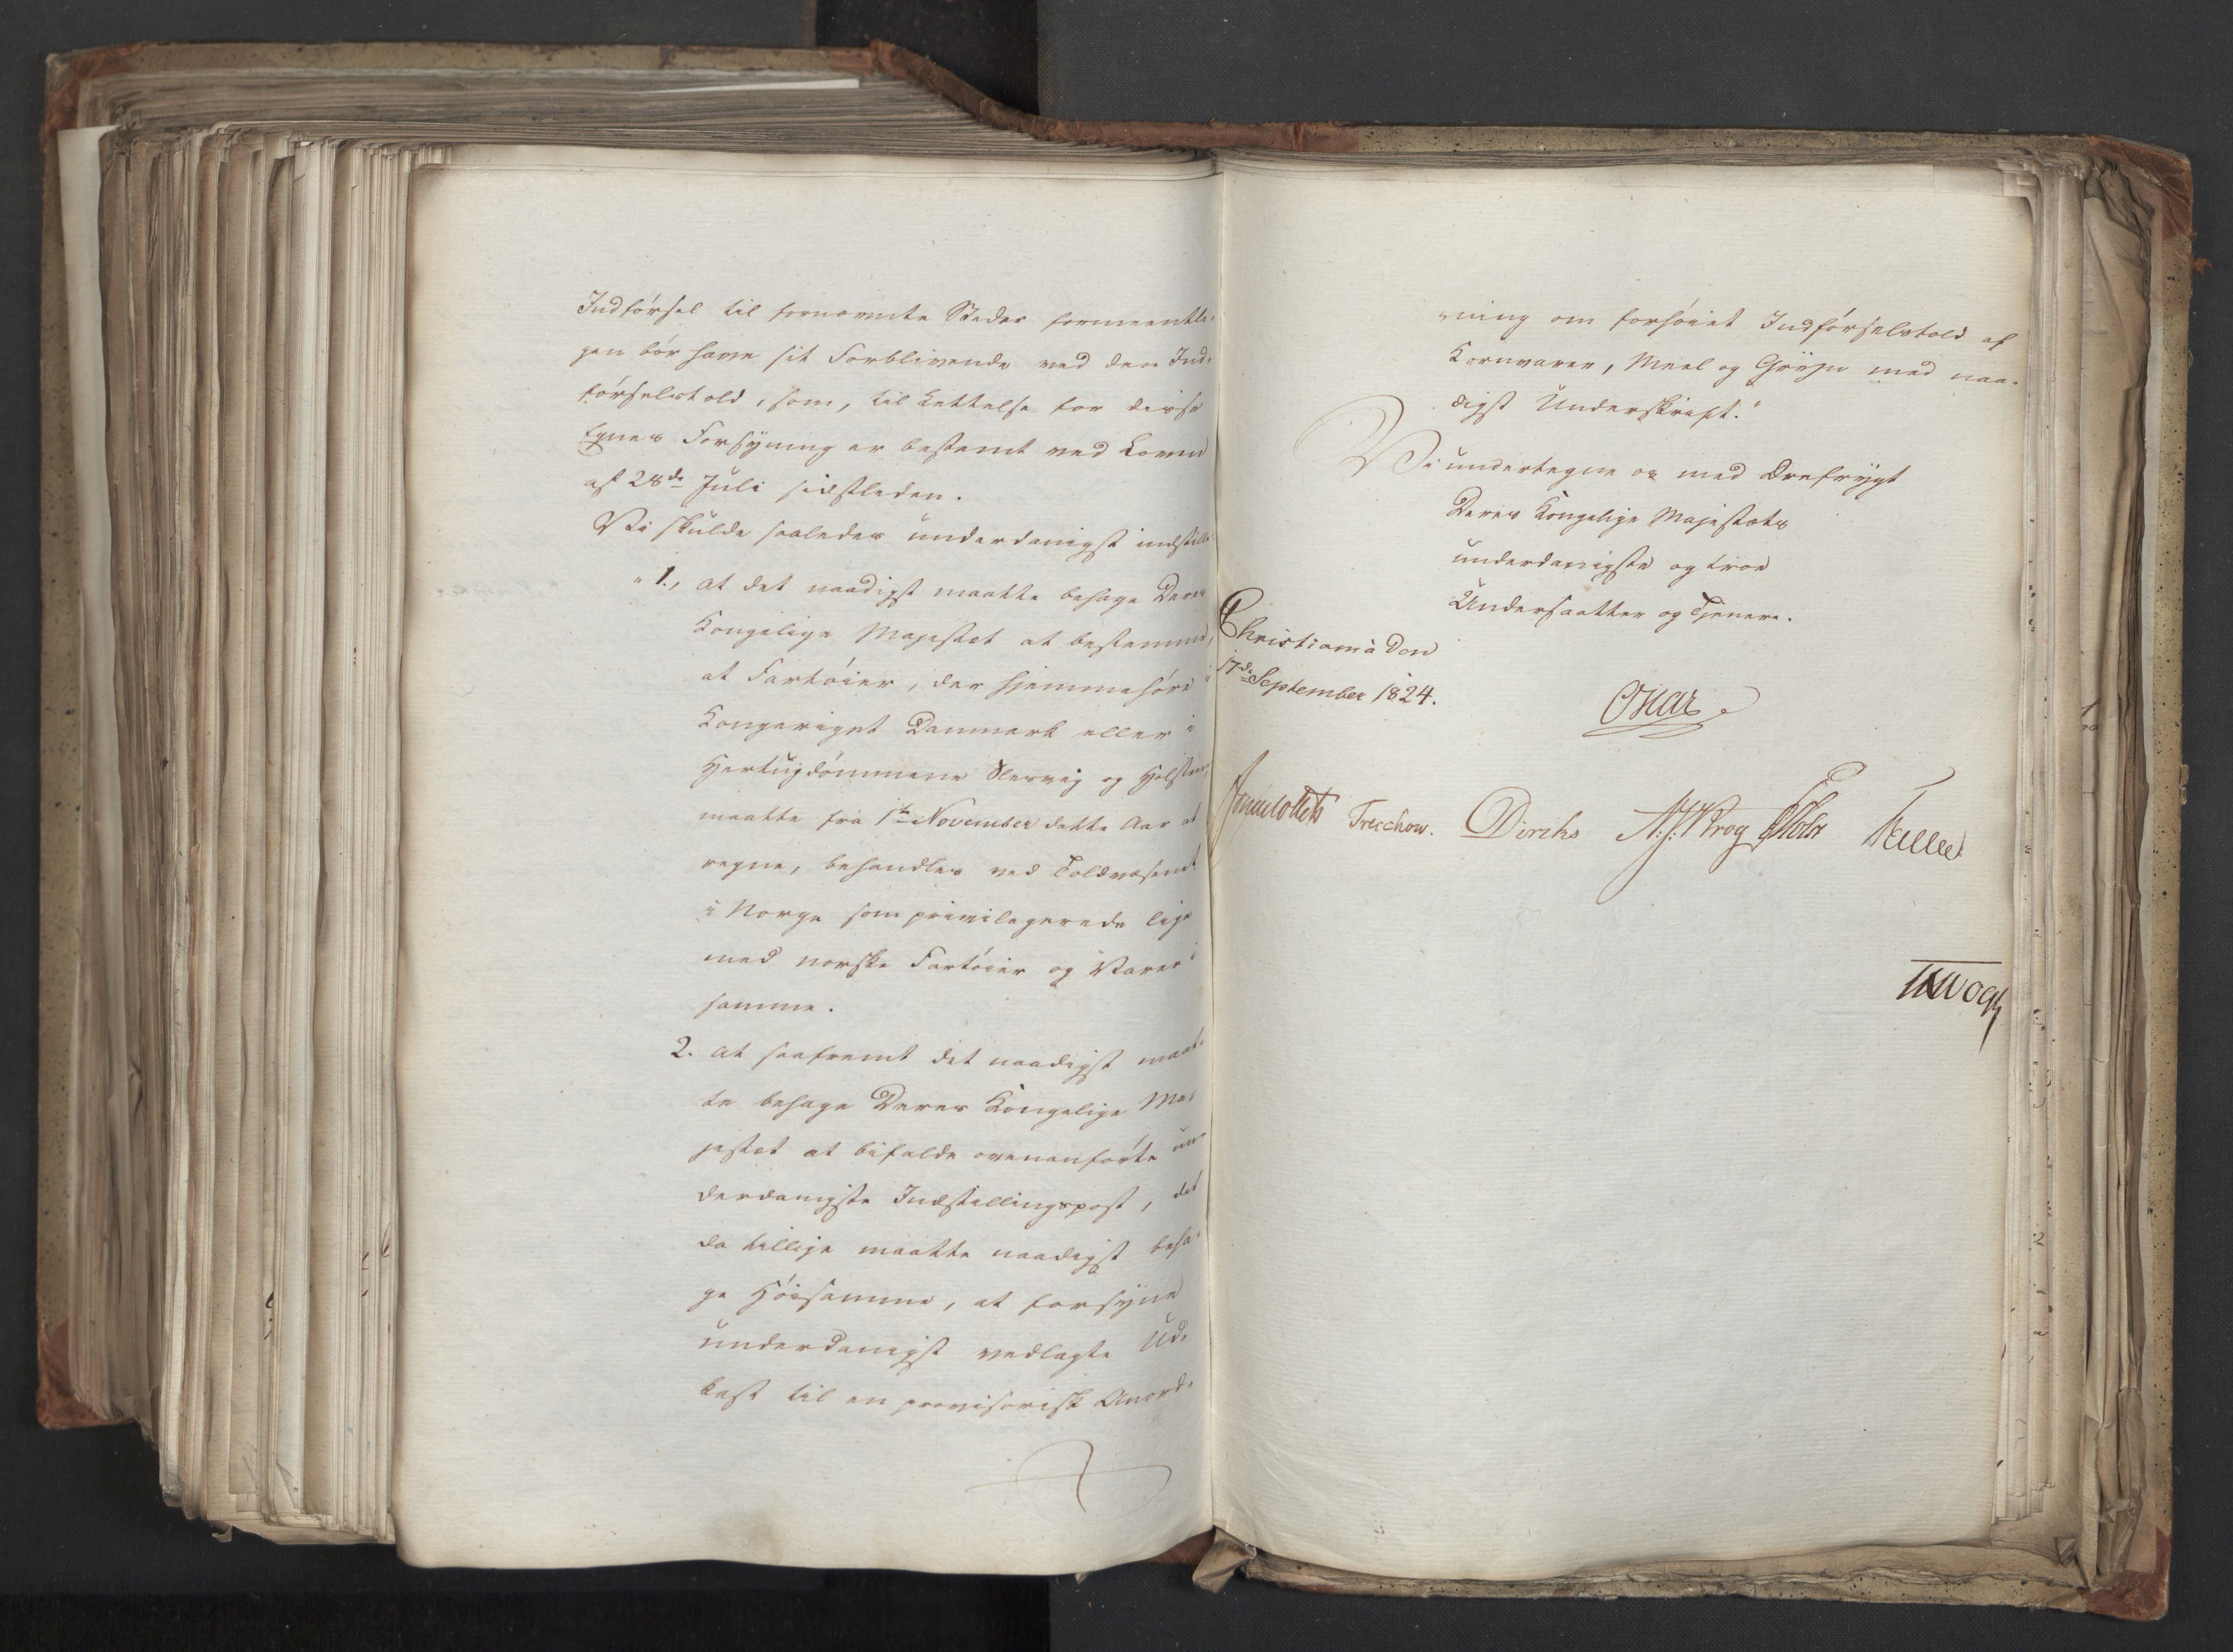 Indførsel til fornævnte Stæder formeentli-
gen bør have sit Forblivende ved den Ind-
førselstold, som, til Lettelse for disse
Egnes Forsyning er bestemt ved Loven
af 28de Juli sidstleden.
Vi skulde saaledes underdanigst indstille:
"1., at det naadigst maatte behage Deres
Kongelige Majestæt at bestemme,
at Fartøier, der hjemmehøre i
Kongeriget Danmark eller i
Hertugdømmene Slesvig og Holsteen,
maatte fra 1ste November dette Aar at
regne, behandles ved Toldvæsenet
i Norge som privilegerede lige
med norske Fartøier og Varer i
samme.
2. at saafremt det naadigst maat-
te behage Deres Kongelige Ma-
jestæt at bifalde ovenanførte un-
derdanigste Indstillingspost, det
da tillige maatte naadigst beha-
ge Høistsamme, at forsyne
underdanigst vedlagte Ud-
kast til en provisorisk Anord-
ning om forhøiet Indførselstold af
Kornvarer, Meel og Gryn med naa-
digst Underskrift."
Vi undertegne os med Ærefrygt
Deres Kongelige Majestæts
underdanigste og troe
Undersaatter og Tjenere.
Christiania den
17de September 1824.
Oscar
Treschow. Diriks A.J. Krog